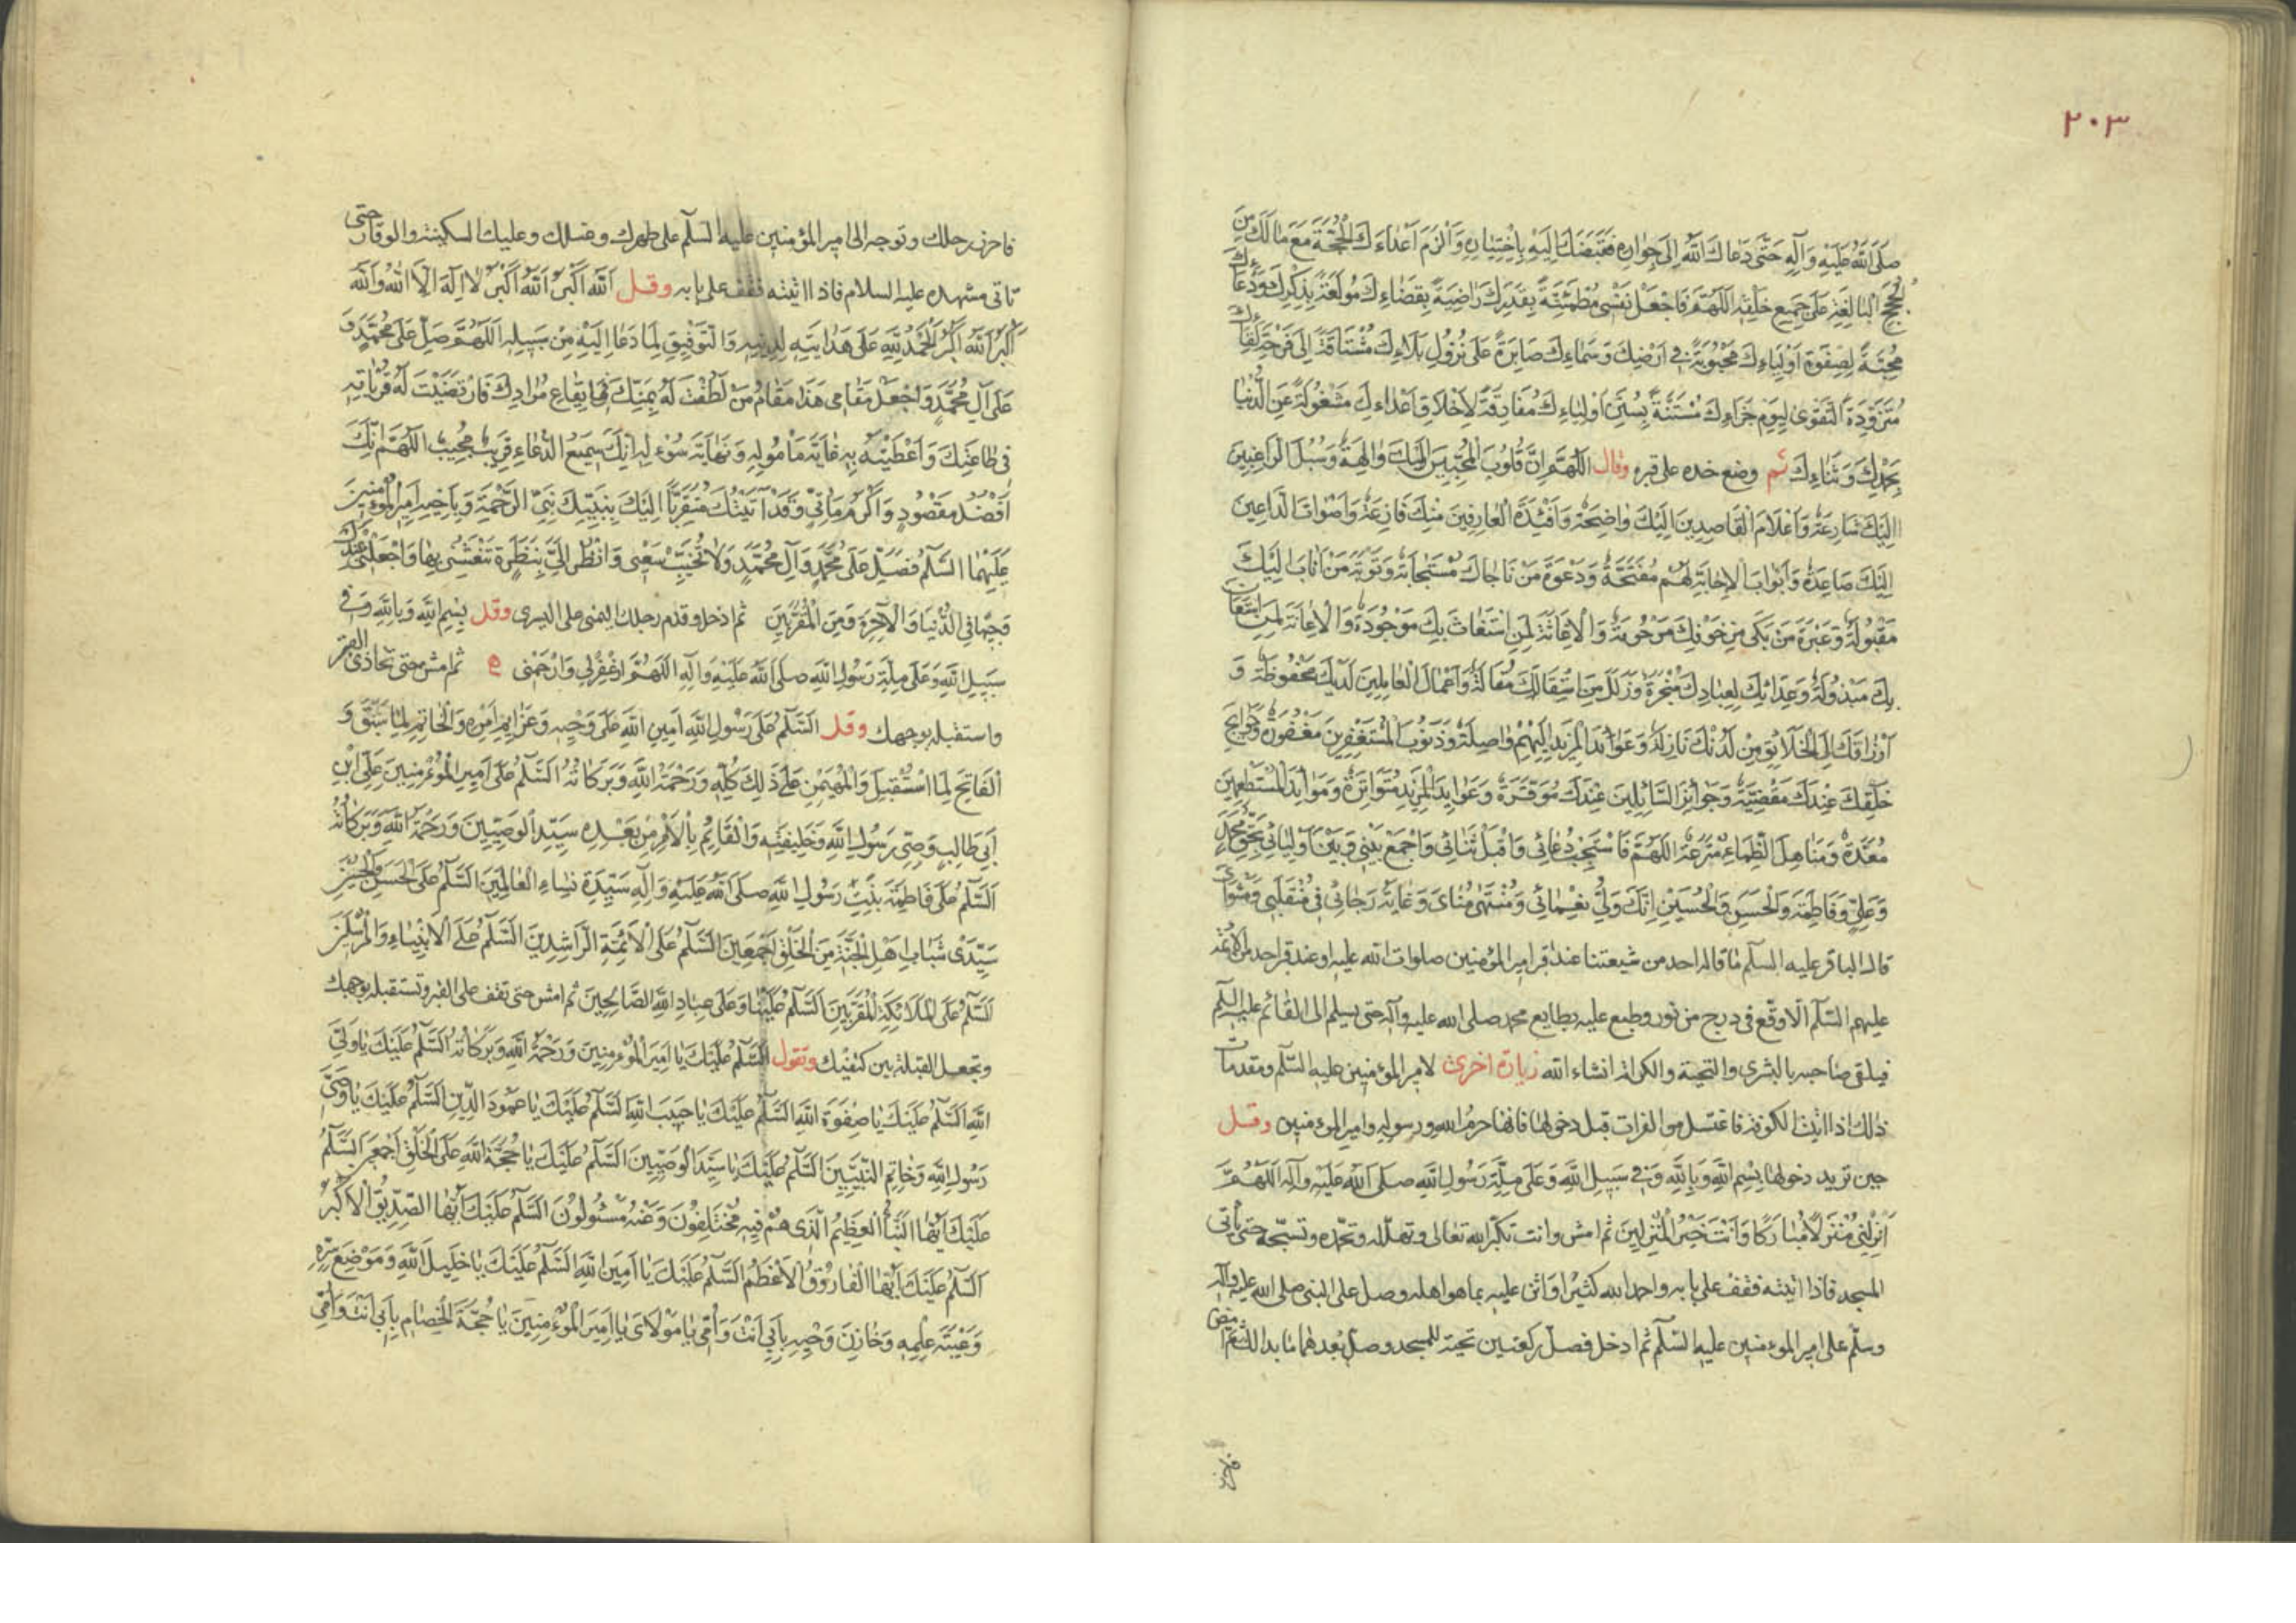 ٢٠٣
صَلَّى اللهُ عَلَيْهِ وَآلِهِ حَتَّى دَعَاكَ اللهُ إِلَى جِوَارِهِ فَقَبَضَكَ إِلَيْهِ بِاخْتِيَارِهِ وَأَلْزَمَ أَعْدَاءَكَ الْحُجَّةَ مَعَ مَا لَكَ مِنَ
الْحُجَجِ الْبَالِغَةِ عَلَى جَمِيعِ خَلْقِهِ اللَّهُمَّ فَاجْعَلْ نَفْسِي مُطْمَئِنَّةً بِقَدَرِكَ رَاضِيَةً بِقَضَاءِكَ مُولَعَةً بِذِكْرِكَ وَدُعَاءِكَ
مُحِبَّةً لِصِفْوَةِ أَوْلِيَاءِكَ مَحْبُوبَةً فِي أَرْضِكَ وَسَمَاءِكَ صَابِرَةً عَلَى نُزُولِ بَلَاءِكَ مُشْتَاقَةً إِلَى فَرْحَةِ لِقَاءِكَ
مُتَزَوِّدَةً التَّقْوَى لِيَوْمِ جَزَاءِكَ مُسْتَنَّةً بِسُنَنِ أَوْلِيَاءِكَ مُفَارِقَةً لِأَخْلَاقِ أَعْدَاءِكَ مَشْغُولَةً عَنِ الدُّنْيَا
بِحَمْدِكَ وَثَنَاءِكَ ثم وضع خده على قبره وقال اللَّهُمَّ إِنَّ قُلُوبَ الْمُخْبِتِينَ إِلَيْكَ وَالِهَةٌ وَسُبُلَ الرَّاغِبِينَ
إِلَيْكَ شَارِعَةٌ وَأَعْلَامَ الْقَاصِدِينَ إِلَيْكَ وَاضِحَةٌ وَأَفْئِدَةَ الْعَارِفِينَ مِنْكَ فَازِعَةٌ وَأَصْوَاتَ الدَّاعِينَ
إِلَيْكَ صَاعِدَةٌ وَأَبْوَابَ الْإِجَابَةِ لَهُمْ مُفَتَّحَةٌ وَدَعْوَةَ مَنْ نَاجَاكَ مُسْتَجَابَةٌ وَتَوْبَةَ مَنْ أَنَابَ إِلَيْكَ
مَقْبُولَةٌ وَعَبْرَةَ مَنْ بَكَى مِنْ خَوْفِكَ مَرْحُومَةٌ وَالْإِغَاثَةَ لِمَنِ اسْتَغَاثَ بِكَ مَوْجُودَةٌ وَالْإِعَانَةَ لِمَنِ اسْتَعَانَ
بِكَ مَبْذُولَةٌ وَعِدَاتِكَ لِعِبَادِكَ مُنْجَزَةٌ وَزَلَلَ مَنِ اسْتَقَالَكَ مُقَالَةٌ وَأَعْمَالَ الْعَامِلِينَ لَدَيْكَ مَحْفُوظَةٌ وَ
أَرْزَاقَكَ إِلَى الْخَلَائِقِ مِنْ لَدُنْكَ نَازِلَةٌ وَعَوَائِدَ الْمَزِيدِ إِلَيْهِمْ وَاصِلَةٌ وَذُنُوبَ الْمُسْتَغْفِرِينَ مَغْفُورَةٌ وَحَوَائِجَ
خَلْقِكَ عِنْدَكَ مَقْضِيَّةٌ وَجَوَائِزَ السَّائِلِينَ عِنْدَكَ مُوَفَّرَةٌ وَعَوَائِدَ الْمَزِيدِ مُتَوَاتِرَةٌ وَمَوَائِدَ الْمُسْتَطْعِمِينَ
مُعَدَّةٌ وَمَنَاهِلَ الظِّمَاءِ مُتْرَعَةٌ اللَّهُمَّ فَاسْتَجِبْ دُعَائِي وَاقْبَلْ ثَنَائِي وَاجْمَعْ بَيْنِي وَبَيْنَ أَوْلِيَائِي بِحَقِّ مُحَمَّدٍ
وَعَلِيٍّ وَفَاطِمَةَ وَالْحَسَنِ وَالْحُسَيْنِ إِنَّكَ وَلِيُّ نَعْمَائِي وَمُنْتَهَى مُنَايَ وَغَايَةُ رَجَائِي فِي مُنْقَلَبِي وَمَثْوَايَ
قال الباقر عليه السلم ما قاله احد من شيعتنا عند قبر امير المؤمنين صلوات الله عليه او عند قبر احد من الائمة
عليهم السلم الا وقع في درج من نور وطبع عليه بطابع محمد صلى الله عليه وآله حتى يسلم الى القائم عليه السلم
فيلقى صاحبه بالبشرى والتحية والكرامة انشاء الله زيارة اخرى لامير المؤمنين عليه السلم ومقدمات
ذلك اذا اتيت الكوفة فاغتسل من الفرات قبل دخولها فانها حرم الله ورسوله وامير المؤمنين وقل
حين تريد دخولها بِسْمِ اللهِ وَبِاللهِ وَفِي سَبِيلِ اللهِ وَعَلَى مِلَّةِ رَسُولِ اللهِ صَلَّى اللهُ عَلَيْهِ وَآلِهِ اللَّهُمَّ
أَنْزِلْنِي مُنْزَلًا مُبَارَكًا وَأَنْتَ خَيْرُ الْمُنْزِلِينَ ثم امش وانت تكبر الله تعالى وتهلله وتحمده وتسبحه حتى تأتي
المسجد فاذا اتيته فقف على بابه واحمد الله كثيرا واثن عليه بما هو اهله وصل على النبي صلى الله عليه وآله
وسلم على امير المؤمنين عليه السلم ثم ادخل فصل ركعتين تحية للمسجد وصل بعدهما ما بدا لك ثم امض
فاحرز رحلك وتوجه الى امير المؤمنين عليه السلم على طهرك وغسلك وعليك السكينة والوقار حتى
تأتي مشهده عليه السلام فاذا اتيته فقف على بابه وقل اَللهُ أَكْبَرُ اَللهُ أَكْبَرُ لَا إِلَهَ إِلَّا اللهُ وَاللهُ
أَكْبَرُ اَللهُ أَكْبَرُ الْحَمْدُ لِلَّهِ عَلَى هِدَايَتِهِ لِدِينِهِ وَالتَّوْفِيقِ لِمَا دَعَا إِلَيْهِ مِنْ سَبِيلِهِ اللَّهُمَّ صَلِّ عَلَى مُحَمَّدٍ وَ
عَلَى آلِ مُحَمَّدٍ وَاجْعَلْ مَقَامِي هَذَا مَقَامَ مَنْ لَطَفْتَ لَهُ بِمَنِّكَ فِي إِيقَاعِ مُرَادِكَ وَارْتَضَيْتَ لَهُ قُرُبَاتِهِ
فِي طَاعَتِكَ وَأَعْطَيْتَهُ بِهِ غَايَةَ مَأْمُولِهِ وَنِهَايَةَ سُؤْلِهِ إِنَّكَ سَمِيعُ الدُّعَاءِ قَرِيبٌ مُجِيبٌ اللَّهُمَّ إِنَّكَ
أَفْضَلُ مَقْصُودٍ وَأَكْرَمُ مَأْتِيٍّ وَقَدْ أَتَيْتُكَ مُتَقَرِّبًا إِلَيْكَ بِنَبِيِّكَ نَبِيِّ الرَّحْمَةِ وَبِأَخِيهِ أَمِيرِ الْمُؤْمِنِينَ
عَلَيْهِمَا السَّلَمُ فَصَلِّ عَلَى مُحَمَّدٍ وَآلِ مُحَمَّدٍ وَلَا تُخَيِّبْ سَعْيِي وَانْظُرْ إِلَيَّ بِنَظْرَةٍ تَنْعَشُنِي بِهَا وَاجْعَلْنِي عِنْدَكَ
وَجِيهًا فِي الدُّنْيَا وَالْآخِرَةِ وَمِنَ الْمُقَرَّبِينَ ثم ادخل وقدم رجلك اليمنى على اليسرى وقل بِسْمِ اللهِ وَبِاللهِ وَفِي
سَبِيلِ اللهِ وَعَلَى مِلَّةِ رَسُولِ اللهِ صَلَّى اللهُ عَلَيْهِ وَآلِهِ اللَّهُمَّ اغْفِرْ لِي وَارْحَمْنِي ثم امش حتى تحاذي القبر
واستقبله بوجهك وقل السَّلَمُ عَلَى رَسُولِ اللهِ أَمِينِ اللهِ عَلَى وَحْيِهِ وَعَزَائِمِ أَمْرِهِ وَالْخَاتِمِ لِمَا سَبَقَ وَ
الْفَاتِحِ لِمَا اسْتُقْبِلَ وَالْمُهَيْمِنِ عَلَى ذَلِكَ كُلِّهِ وَرَحْمَةُ اللهِ وَبَرَكَاتُهُ السَّلَمُ عَلَى أَمِيرِ الْمُؤْمِنِينَ عَلِيِّ ابْنِ
أَبِي طَالِبٍ وَصِيِّ رَسُولِ اللهِ وَخَلِيفَتِهِ وَالْقَائِمِ بِالْأَمْرِ مِنْ بَعْدِهِ سَيِّدِ الْوَصِيِّينَ وَرَحْمَةُ اللهِ وَبَرَكَاتُهُ
السَّلَمُ عَلَى فَاطِمَةَ بِنْتِ رَسُولِ اللهِ صَلَّى اللهُ عَلَيْهِ وَآلِهِ سَيِّدَةِ نِسَاءِ الْعَالَمِينَ السَّلَمُ عَلَى الْحَسَنِ وَالْحُسَيْنِ
سَيِّدَيْ شَبَابِ أَهْلِ الْجَنَّةِ مِنَ الْخَلْقِ أَجْمَعِينَ السَّلَمُ عَلَى الْأَئِمَّةِ الرَّاشِدِينَ السَّلَمُ عَلَى الْأَنْبِيَاءِ وَالْمُرْسَلِينَ
السَّلَمُ عَلَى الْمَلَائِكَةِ الْمُقَرَّبِينَ السَّلَمُ عَلَيْنَا وَعَلَى عِبَادِ اللهِ الصَّالِحِينَ ثم امش حتى تقف على القبر وتستقبله بوجهك
وتجعل القبلة بين كتفيك وتقول السَّلَمُ عَلَيْكَ يَا أَمِيرَ الْمُؤْمِنِينَ وَرَحْمَةُ اللهِ وَبَرَكَاتُهُ السَّلَمُ عَلَيْكَ يَا وَلِيَّ
اللهِ السَّلَمُ عَلَيْكَ يَا صِفْوَةَ اللهِ السَّلَمُ عَلَيْكَ يَا حَبِيبَ اللهِ السَّلَمُ عَلَيْكَ يَا عَمُودَ الدِّينِ السَّلَمُ عَلَيْكَ يَا وَصِيَّ
رَسُولِ اللهِ وَخَاتِمِ النَّبِيِّينَ السَّلَمُ عَلَيْكَ يَا سَيِّدَ الْوَصِيِّينَ السَّلَمُ عَلَيْكَ يَا حُجَّةَ اللهِ عَلَى الْخَلْقِ أَجْمَعِينَ السَّلَمُ
عَلَيْكَ أَيُّهَا النَّبَأُ الْعَظِيمُ الَّذِي هُمْ فِيهِ مُخْتَلِفُونَ وَعَنْهُ مَسْئُولُونَ السَّلَمُ عَلَيْكَ أَيُّهَا الصِّدِّيقُ الْأَكْبَرُ
السَّلَمُ عَلَيْكَ أَيُّهَا الْفَارُوقُ الْأَعْظَمُ السَّلَمُ عَلَيْكَ يَا أَمِينَ اللهِ السَّلَمُ عَلَيْكَ يَا خَلِيلَ اللهِ وَمَوْضِعَ سِرِّهِ
وَعَيْبَةَ عِلْمِهِ وَخَازِنَ وَحْيِهِ بِأَبِي أَنْتَ وَأُمِّي يَا مَوْلَايَ يَا أَمِيرَ الْمُؤْمِنِينَ يَا حُجَّةَ الْخِصَامِ بِأَبِي أَنْتَ وَأُمِّي